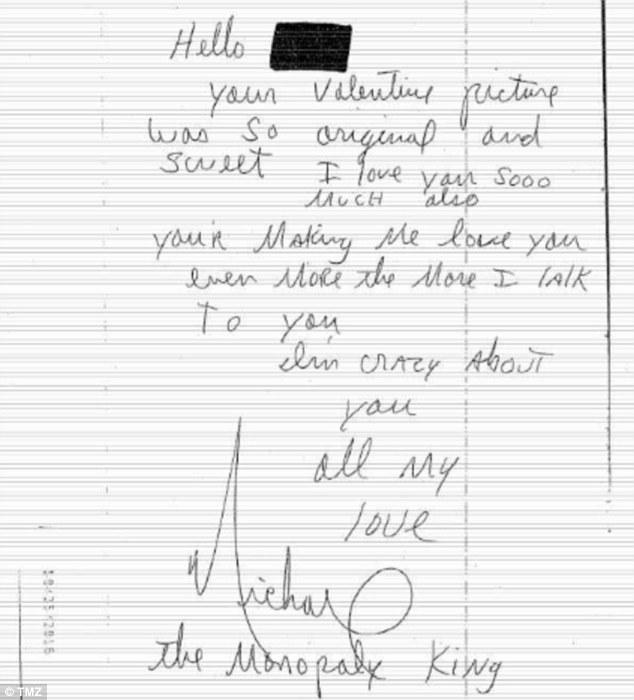 Hello
your Valentine picture
was so original and
sweet I love you sooo
MUCH also
you'r Making Me love you
even More the More I talk
To you
I'm CRAZY About
you
all my
love
Michael
the Monopaly King
10/25/2016
© TMZ